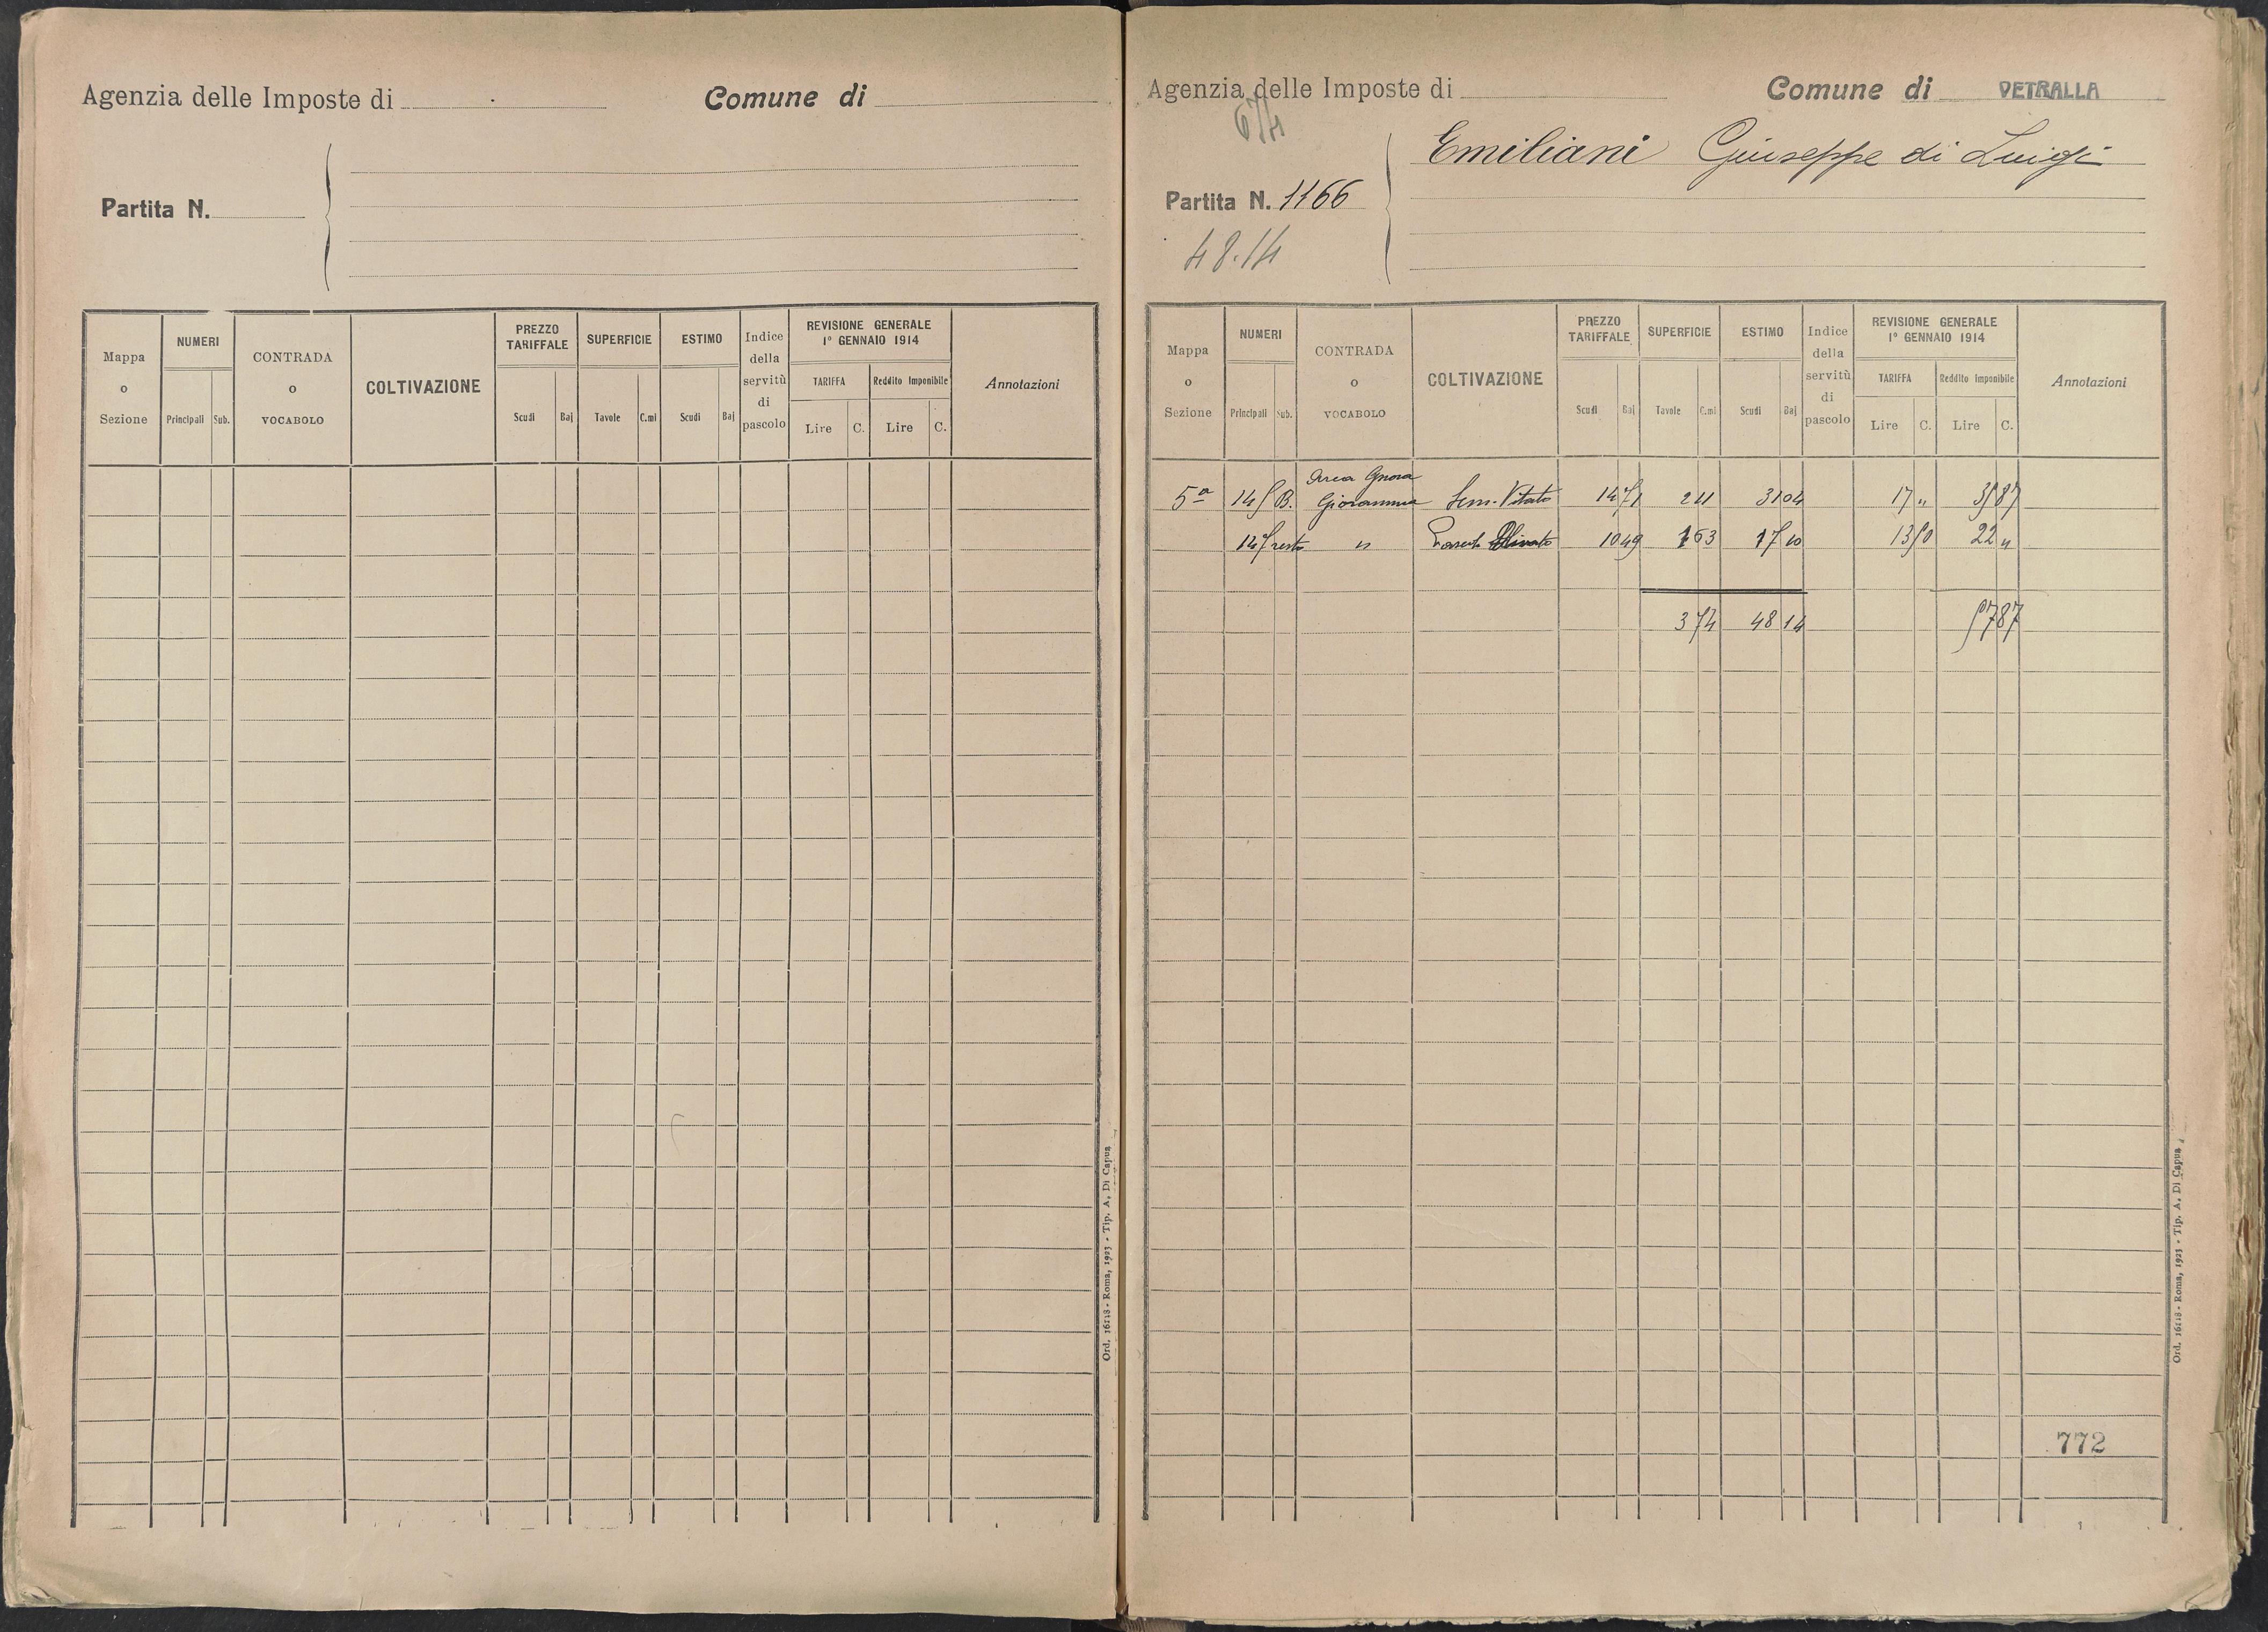 Agenzia delle Imposte di
Comune di
Partita N.
Mappa o Sezione
NUMERI
Principali Sub.
CONTRADA o VOCABOLO
COLTIVAZIONE
PREZZO TARIFFALE
Scudi Baj
SUPERFICIE
Tavole C.mi
ESTIMO
Scudi Baj
Indice della servitù di pascolo
REVISIONE GENERALE
1° GENNAIO 1914
TARIFFA
Lire C.
Reddito Imponibile
Lire C.
Annotazioni
Ord. 16118 - Roma, 1923 - Tip. A. Di Capua
Agenzia delle Imposte di
Comune di VETRALLA
674
Emiliani Giuseppe di Luigi
Partita N. 1166
48.14
Mappa o Sezione
NUMERI
Principali Sub.
CONTRADA o VOCABOLO
COLTIVAZIONE
PREZZO TARIFFALE
Scudi Baj
SUPERFICIE
Tavole C.mi
ESTIMO
Scudi Baj
Indice della servitù di pascolo
REVISIONE GENERALE
1° GENNAIO 1914
TARIFFA
Lire C.
Reddito Imponibile
Lire C.
Annotazioni
5a B. Sem. Vitato 14 71 2 11 31 04 17 " 35 87
resto " Olivato 10 49 1 63 17 10 13 50 22 "
3 74 48 14 57 87
772
Ord. 16118 - Roma, 1923 - Tip. A. Di Capua